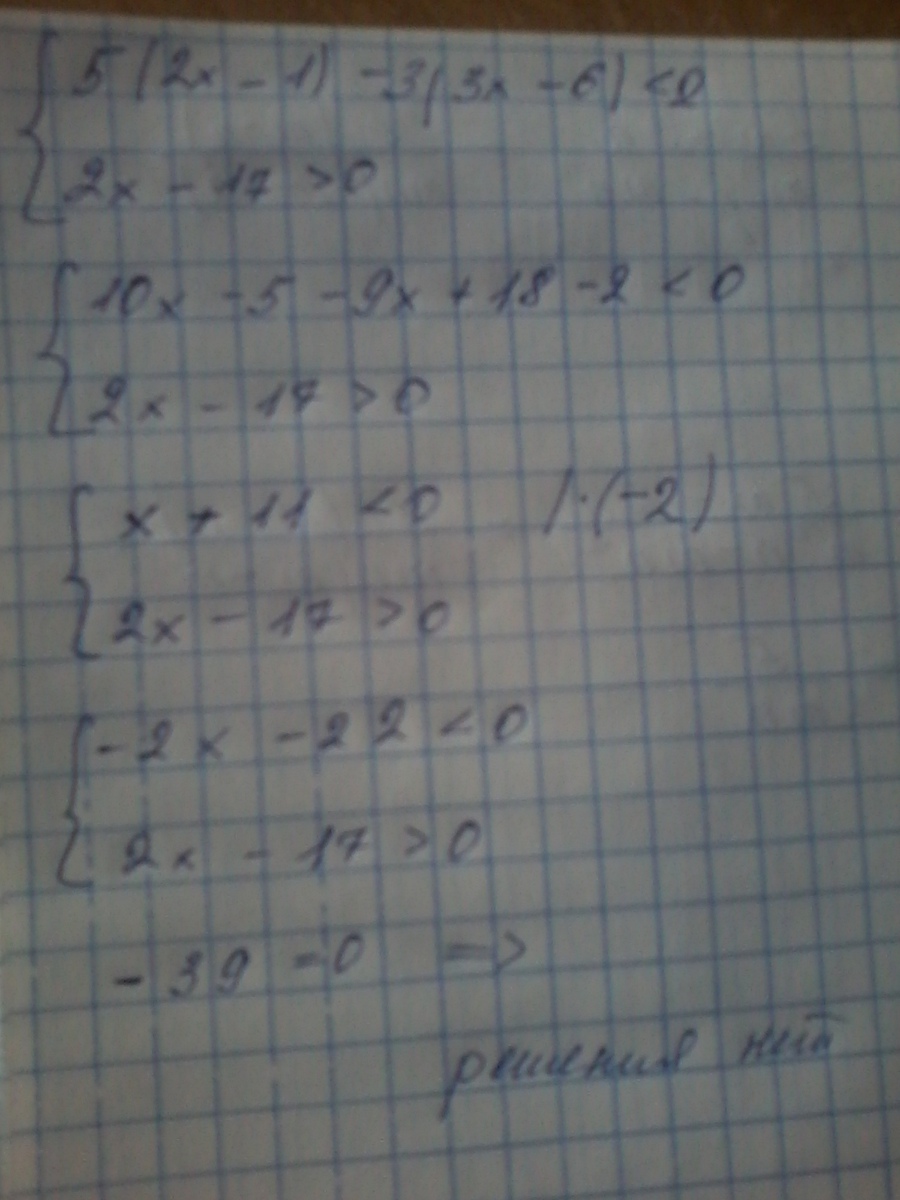 5(2x - 1) - 3(3x - 6) < 2
2x - 17 > 0
10x - 5 - 9x + 18 - 2 < 0
2x - 17 > 0
x + 11 < 0 / · (-2)
2x - 17 > 0
-2x - 22 < 0
2x - 17 > 0
- 39 = 0 =>
решения нет